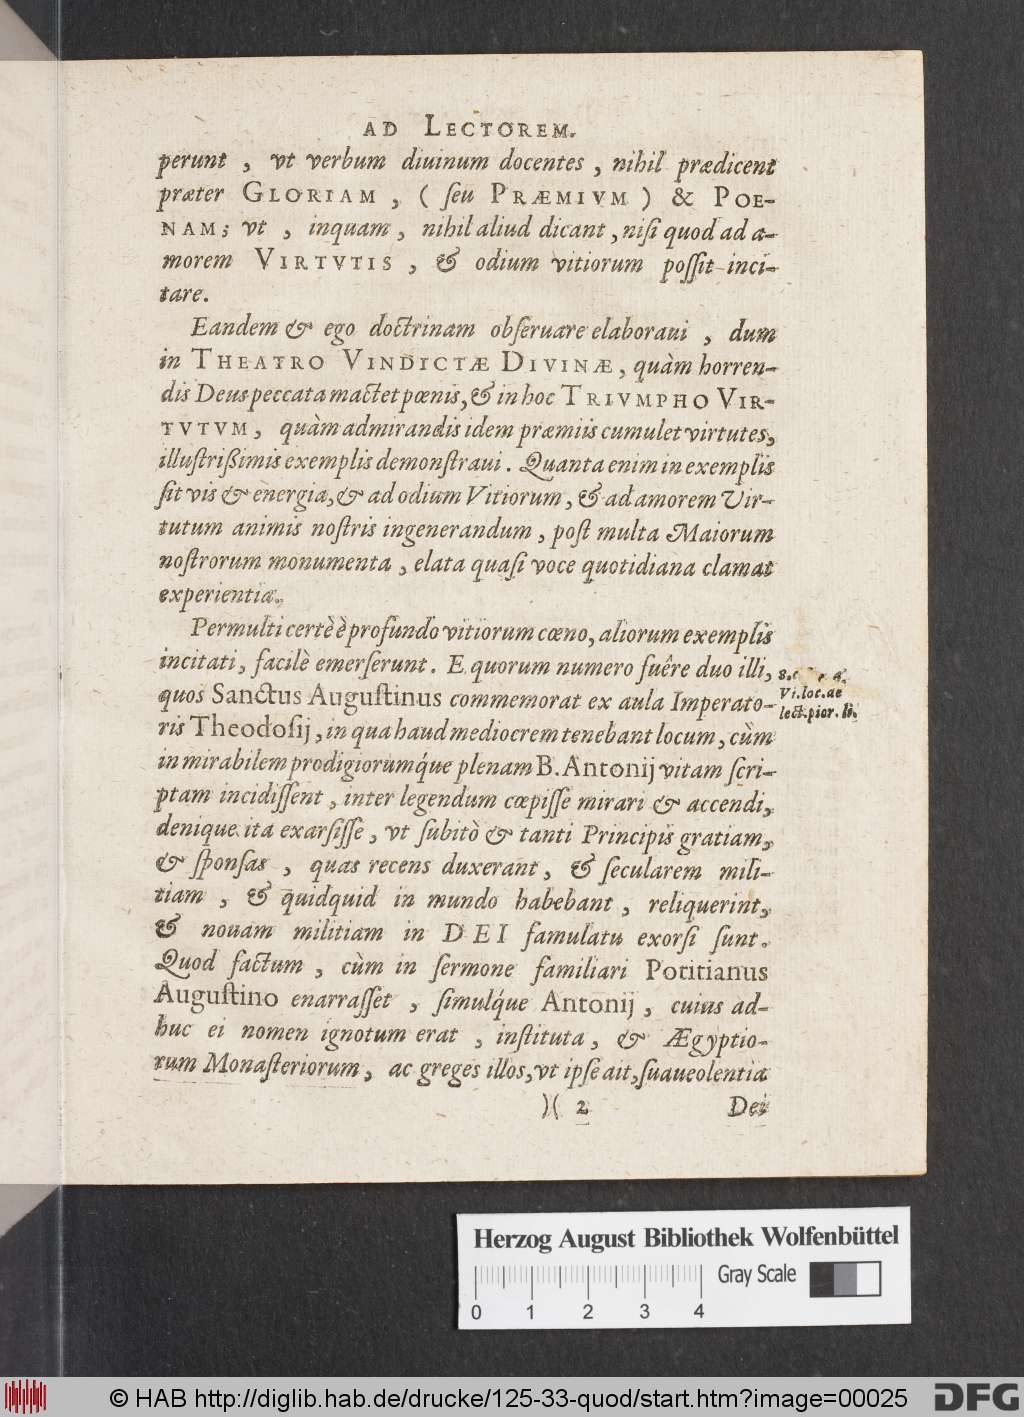 AD LECTOREM.
perunt, vt verbum diuinum docentes, nihil prædicent
præter GLORIAM, (seu PRÆMIVM) & POE-
NAM; vt, inquam, nihil aliud dicant, nisi quod ad a-
morem VIRTVTIS, & odium vitiorum possit inci-
tare.
Eandem & ego doctrinam obseruare elaboraui, dum
in THEATRO VINDICTÆ DIVINÆ, quàm horren-
dis Deus peccata mactet pœnis, & in hoc TRIVMPHO VIR-
TVTVM, quàm admirandis idem præmiis cumulet virtutes,
illustrißimis exemplis demonstraui. Quanta enim in exemplis
sit vis & energia, & ad odium Vitiorum, & ad amorem Vir-
tutum animis nostris ingenerandum, post multa Maiorum
nostrorum monumenta, elata quasi voce quotidiana clamat
experientia.
Permulti certè è profundo vitiorum cœno, aliorum exemplis
incitati, facilè emerserunt. E quorum numero fuêre duo illi,
quos Sanctus Augustinus commemorat ex aula Imperato-
ris Theodosij, in qua haud mediocrem tenebant locum, cùm
in mirabilem prodigiorumq́ue plenam B. Antonij vitam scri-
ptam incidissent, inter legendum cœpisse mirari & accendi,
denique ita exarsisse, vt subitò & tanti Principis gratiam,
& sponsas, quas recens duxerant, & secularem mili-
tiam, & quidquid in mundo habebant, reliquerint,
& nouam militiam in DEI famulatu exorsi sunt.
Quod factum, cùm in sermone familiari Potitianus
Augustino enarrasset, simulq́ue Antonij, cuius ad-
huc ei nomen ignotum erat, instituta, & Ægyptio-
rum Monasteriorum, ac greges illos, vt ipse ait, suaueolentia
)( 2 Dei
Vi. loc. de
lect. pior. li.
Herzog August Bibliothek Wolfenbüttel
Gray Scale
0 1 2 3 4
© HAB http://diglib.hab.de/drucke/125-33-quod/start.htm?image=00025
DFG